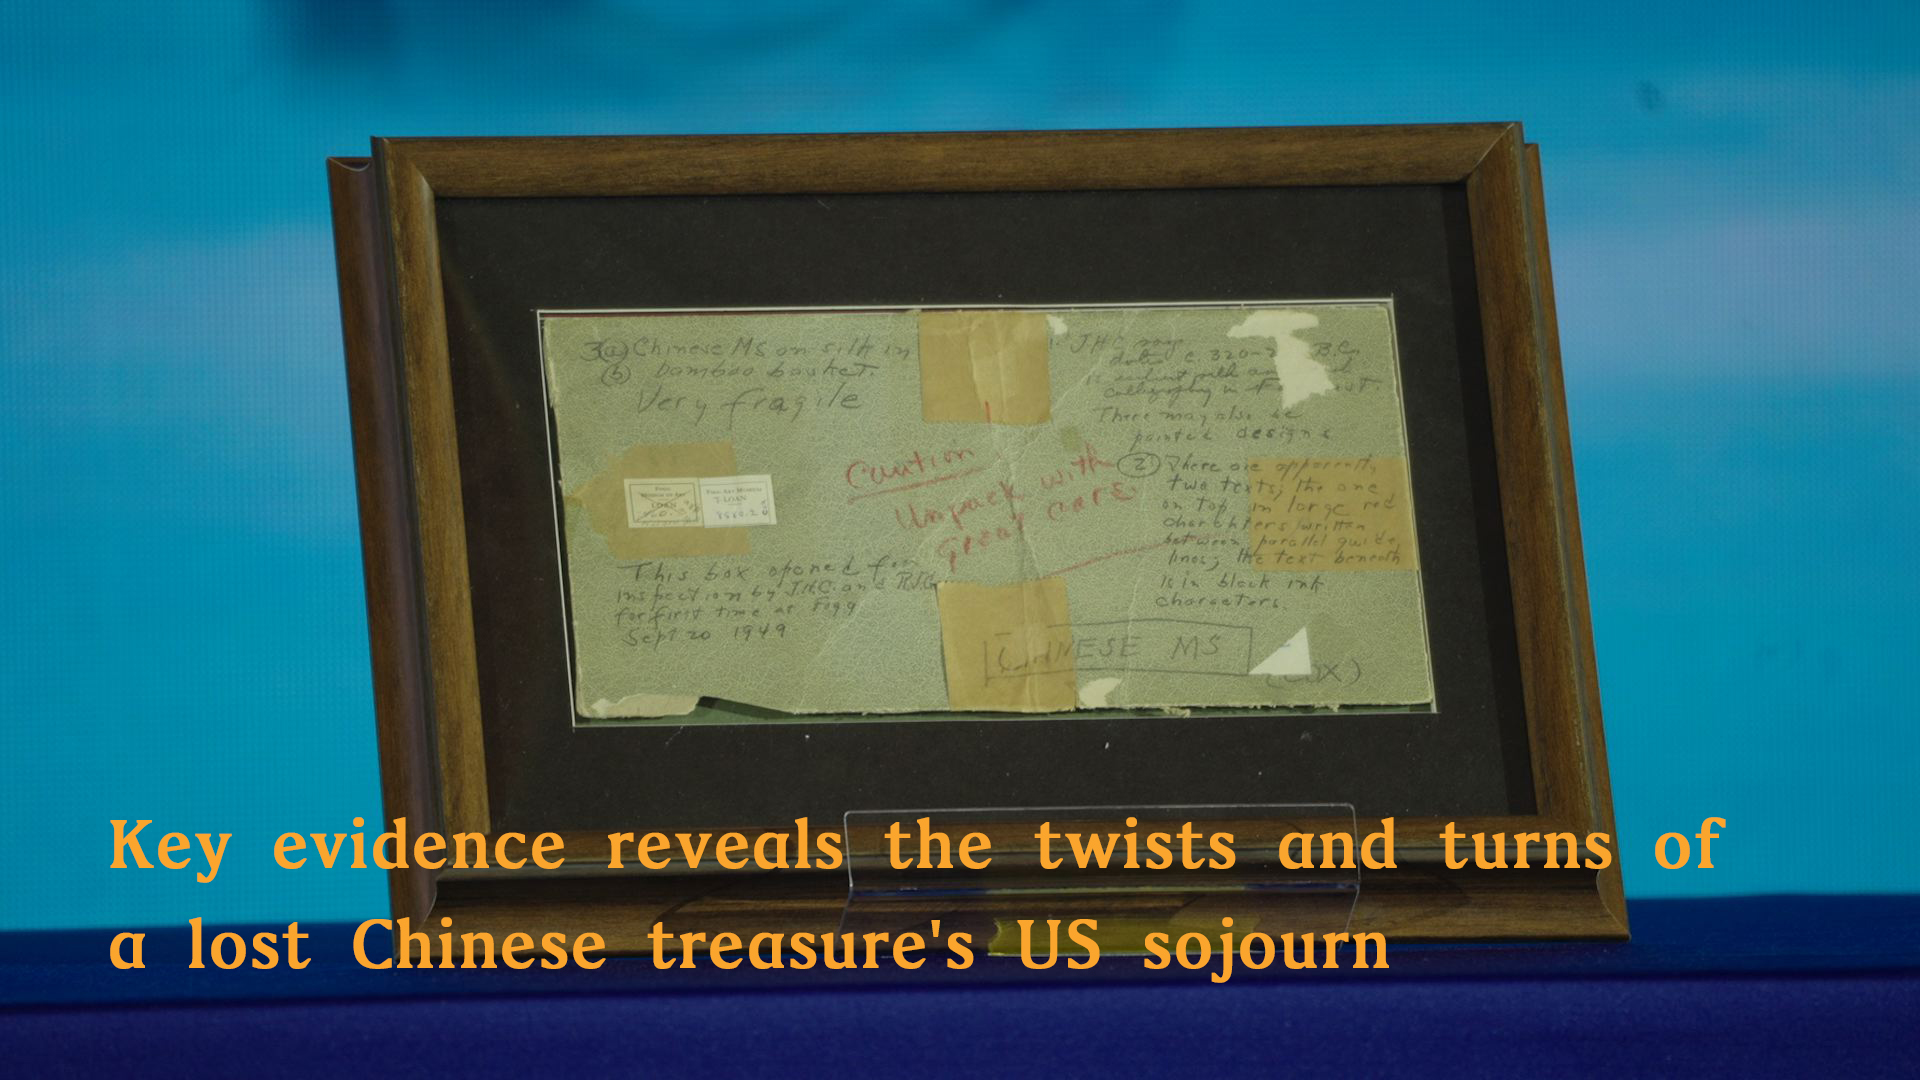 3(a) Chinese MS on silk in
(b) bamboo basket.
Very fragile
Caution
Unpack with
great care.
FOGG
MUSEUM OF ART
LOAN
FOGG ART MUSEUM
LOAN
This box opened for
inspection by J.H.C. and R.J.G.
for first time at Fogg
Sept 20 1949
1. JHC says
date c. 320-2 B.C.
calligraphy in
There may also be
painted designs
(2) There are apparently
two texts; the one
on top in large red
charachters written
between parallel guide
lines; the text beneath
is in black ink
characters.
CHINESE MS
Key evidence reveals the twists and turns of
a lost Chinese treasure's US sojourn